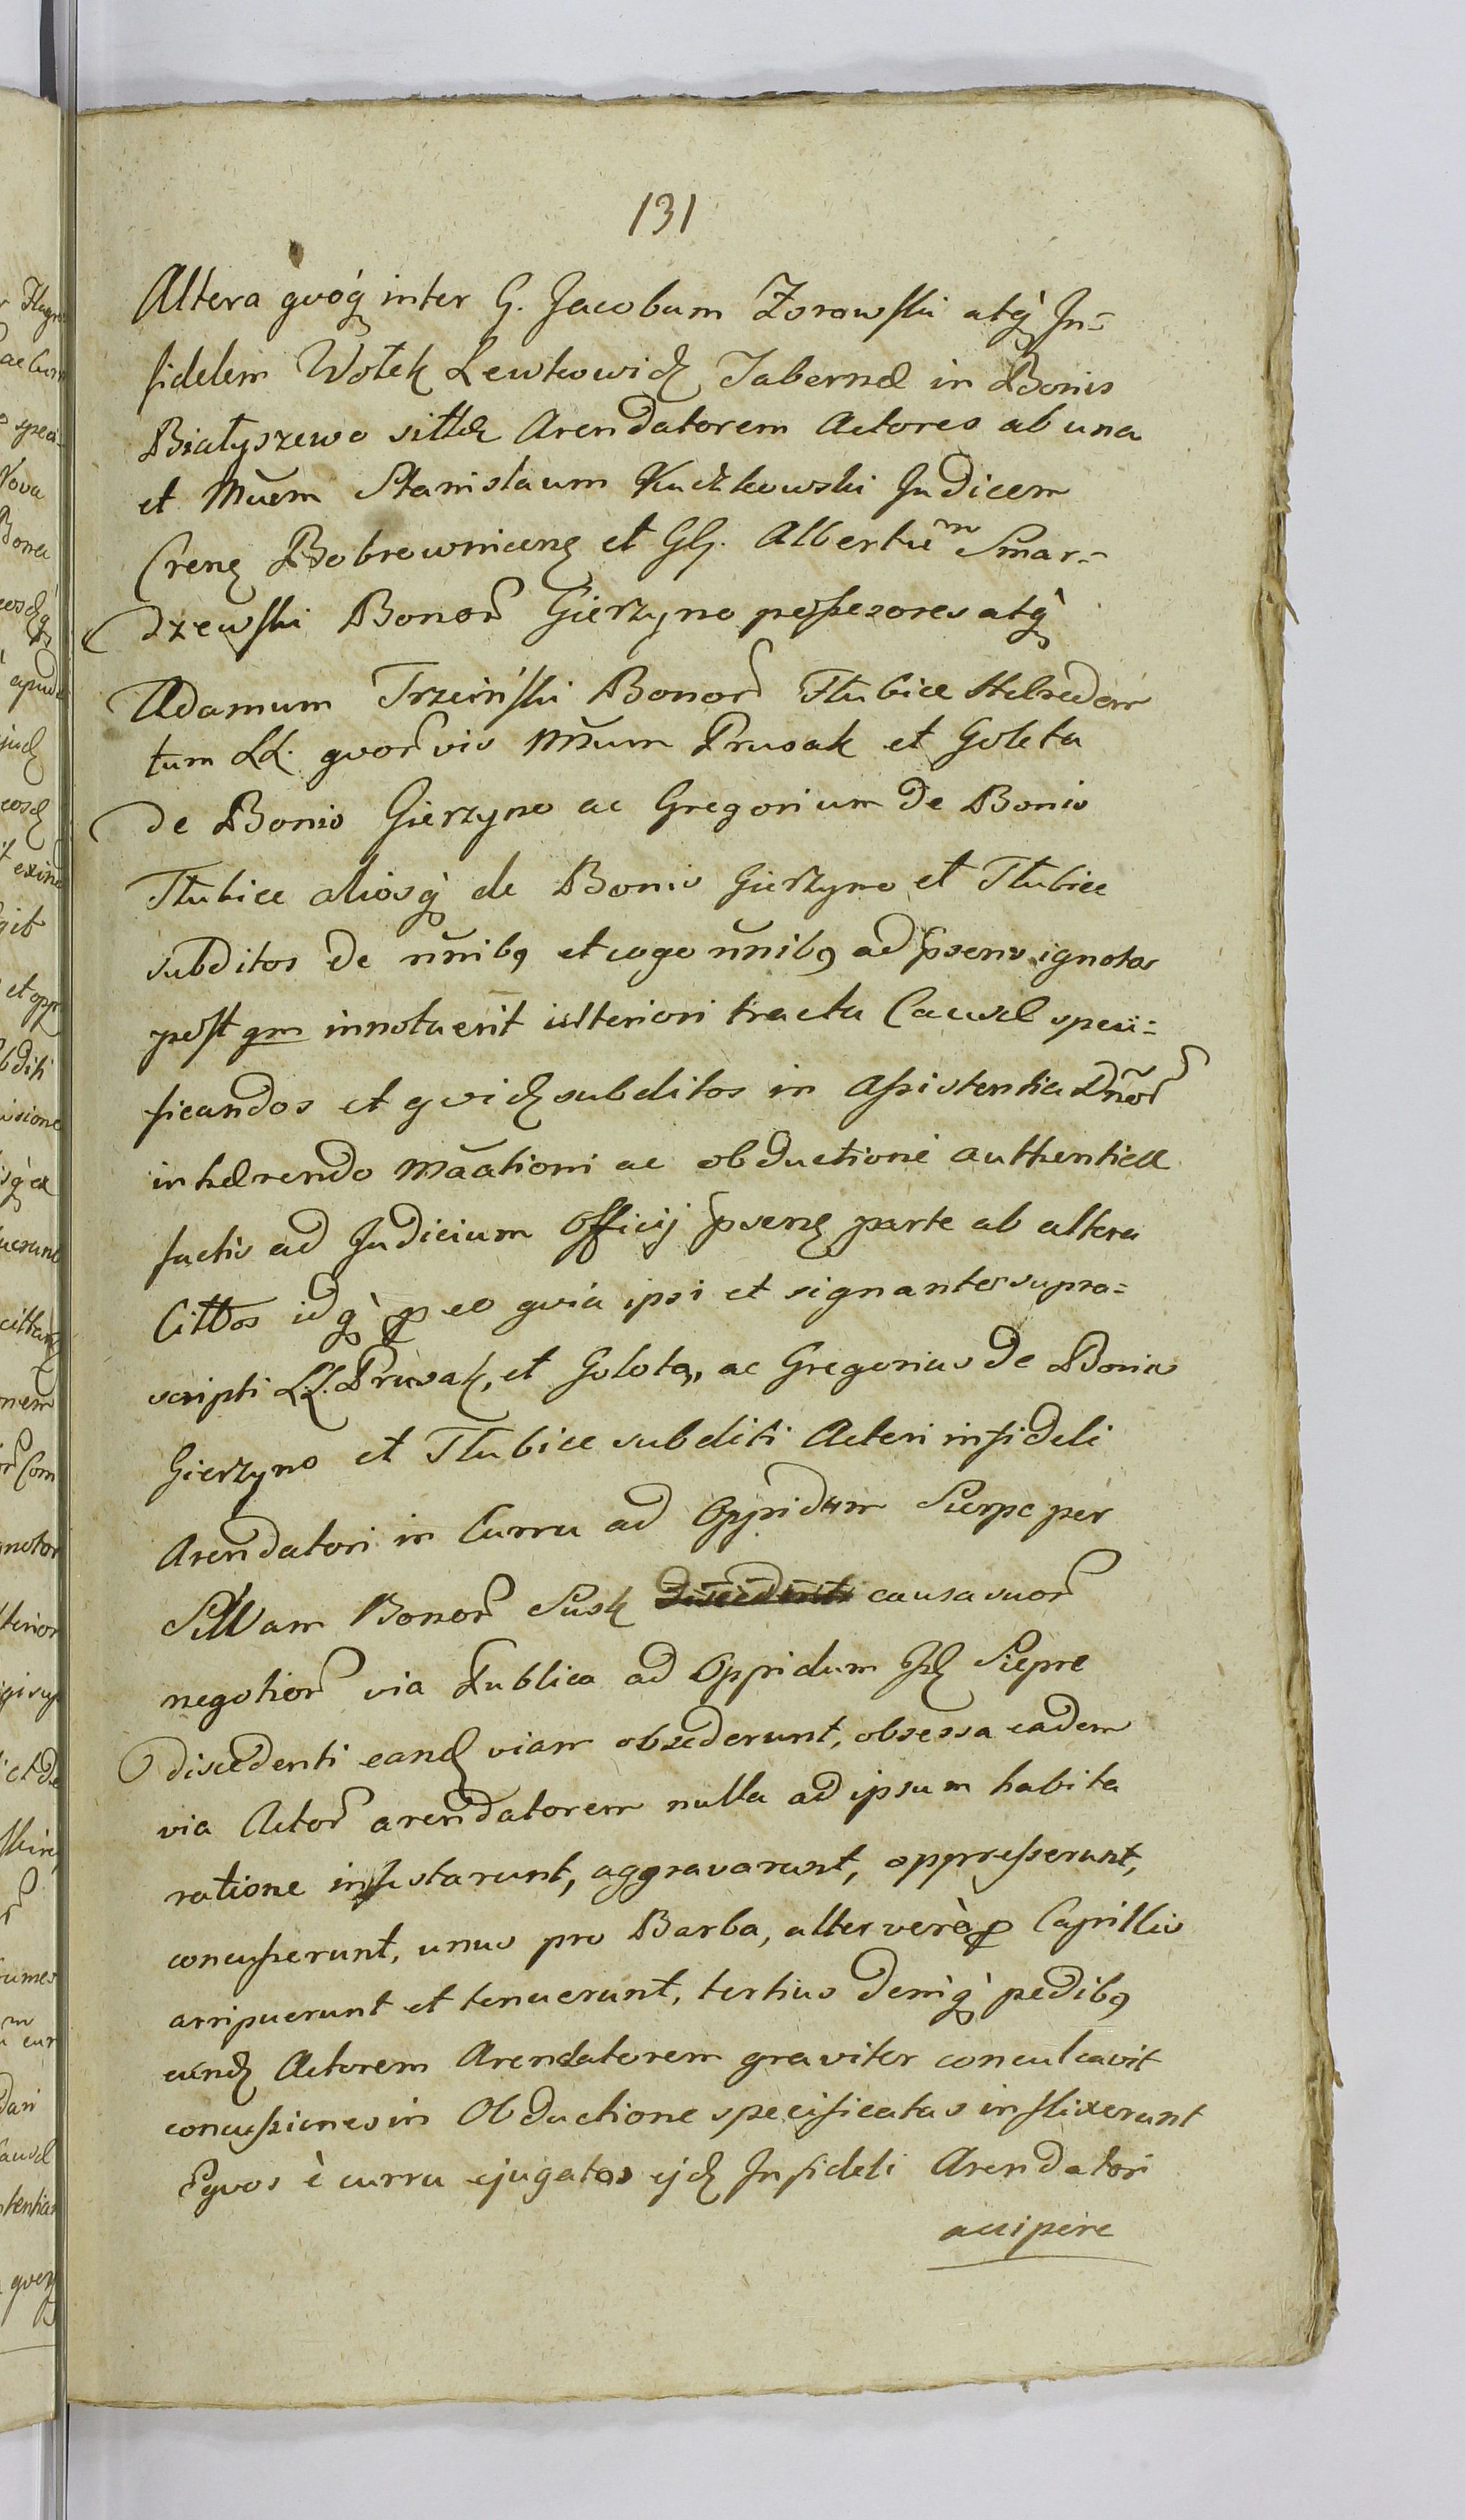 131
Altera qvoq́ inter G. Jacobum Zorawski atq́ In-
fidelem Wołek Lewkowicz Tabernæ in Bonis
Białyszewo sittæ Arendatorem Actores ab una
et Mũem Stanislaum Kuczkowski Judicem
Crenę Bobrownicenę et GG. Albertũm Smar-
dzewski Bonor Gierzyno possessores atq̀
Adamum Trzciński Bonor Tłubice Hæredem
tum LL. qvorvis Mũum Prusak et Goleta
de Bonis Gierzyno ac Gregorium de Bonis
Tłubice aliosq̀ de Bonis Gierzyno et Tłubice
subditos de nñibꝰ et cogo nñibꝰ ad psens ignotos
post qm innotuerit ulteriori tractu Causæ speci-
ficandos et qvidę subditos in assistentia Dñor
inhærendo Mãationi ac obductioni authenticæ
factis ad Judicium Officij psenę parte ab altera
Cittos idq̀ ꝑ eo qvia ipsi et signanter supra-
scripti LL. Prusak, et Golota, ac Gregorius de Bonis
Gierzyno et Tłubice subditi Actori infideli
Arendatori in Curru ad Oppidum Sierpc per
Sillvam Bonor Susk causa suor
negotior via Publica ad Oppidum Idę Siepre
discedenti eandę viam obsederunt, obsessa eadem
via Actor arendatorem nulla ad ipsum habita
ratione infestarunt, aggravarunt, oppresserunt,
concusserunt, unus pro Barba, alter verò ꝑ Capillis
arripuerunt et tenuerunt, tertius deniq̀ pedibꝰ
eundę Actorem Arendatorem graviter conculcavit
concussiones in Obductione specificatas inflixerunt
Eqvos è curru ejugatos ejdę Infideli Arendatori
accipere